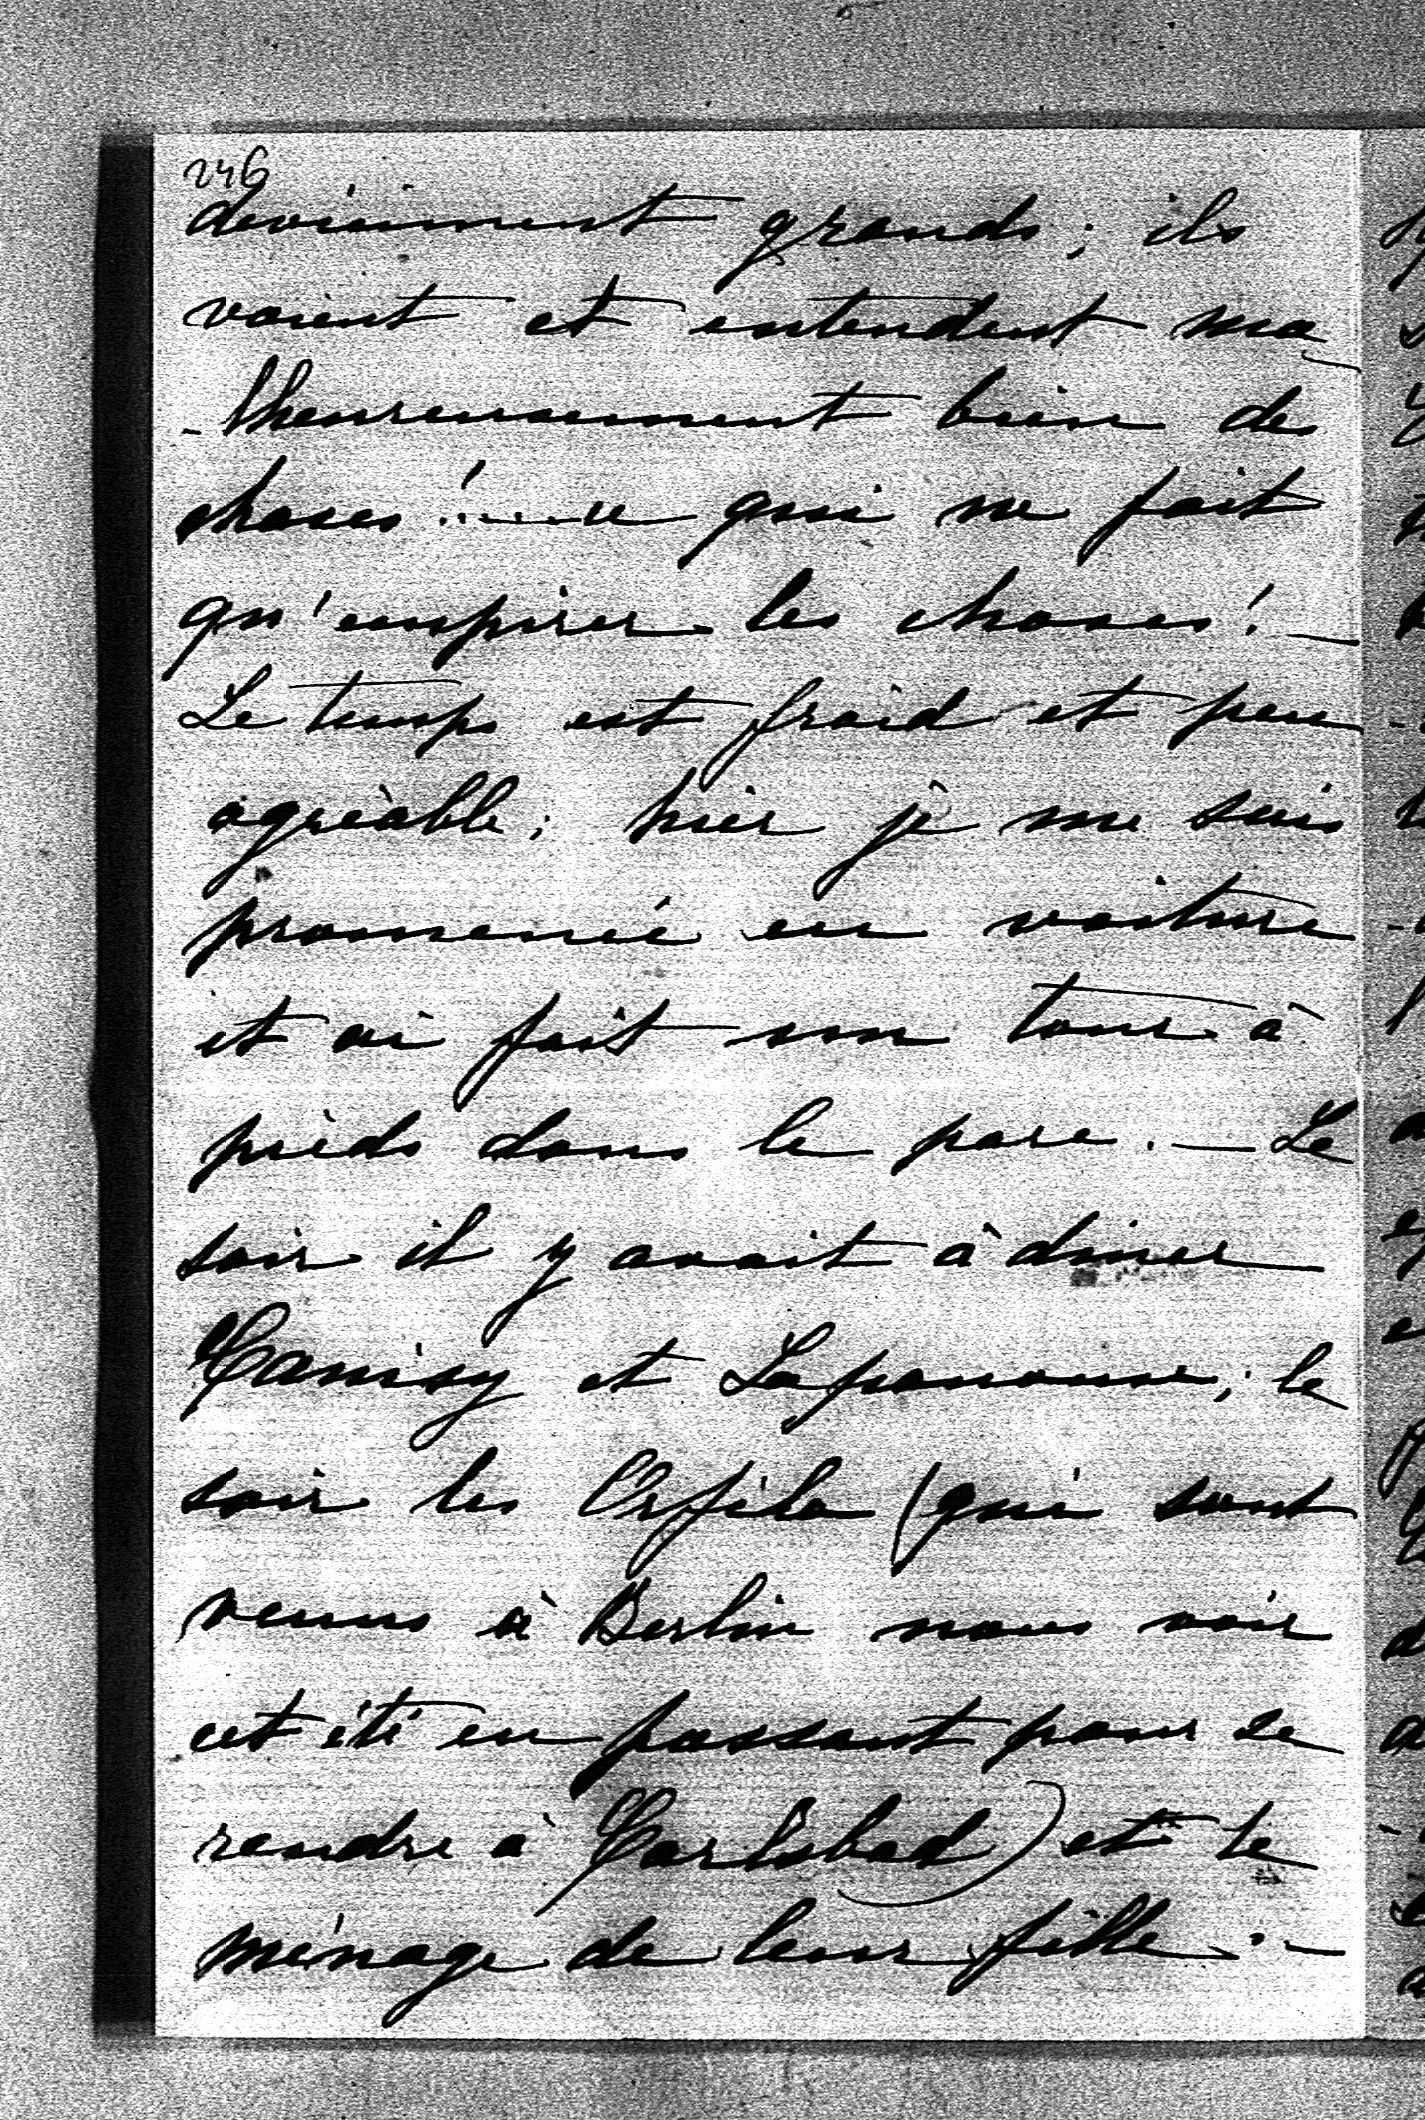 246
deviennent grands ; ils
voient et entendent ma
-lheureusement bien des
choses !...... ce qui ne fait
qu'empirer les choses ! —
Le temps est froid et peu
agréable ; hier je me suis
promenée en voiture
et ai fait un tour à
pieds dans le parc. — Le
soir il y avait à diner
Camisy et Lapanouse ; le
soir les Orfila (qui sont
venus à Berlin nous voir
cet été en passant pour se
rendre à Carlsbad) et le
ménage de leur fille . —